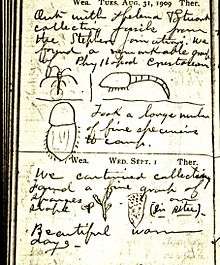 Wea. TUES. AUG. 31, 1909 Ther.
Out with Helena & Stuart
collecting fossils from
the Stephen formation. We
found a remarkable group of
Phyllopod Crustaceans
Took a large number
of fine specimens
to camp.
Wea. WED. SEPT. 1 Ther.
We continued collecting
found a fine group of
sponges on
slope (in situ).
Beautiful warm
days